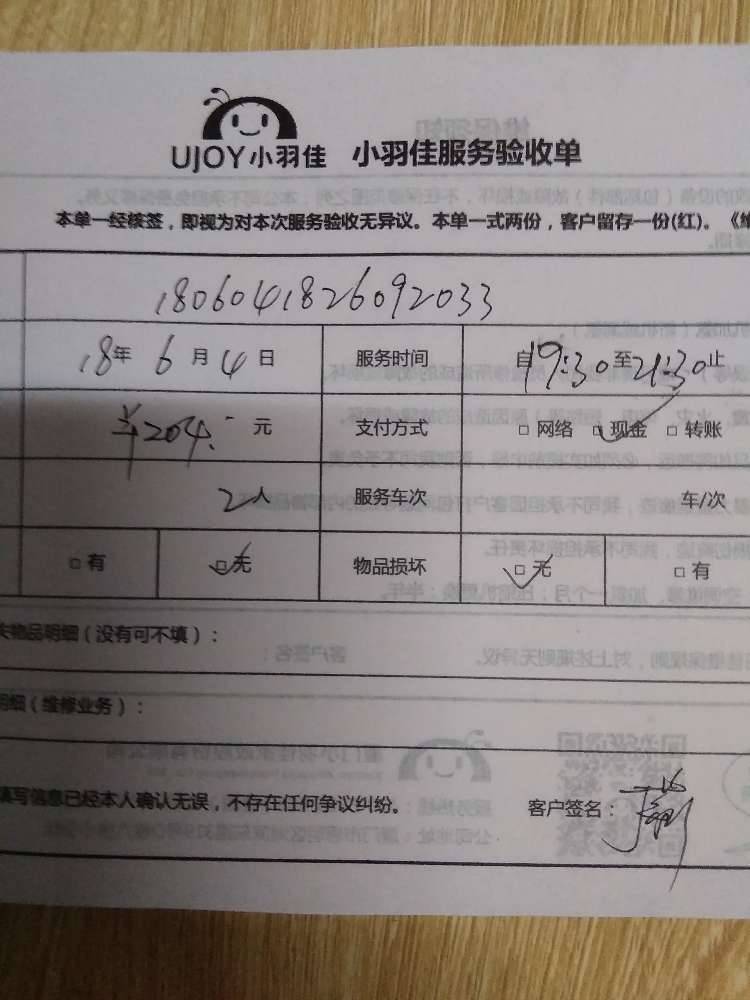 UJOY小羽佳 小羽佳服务验收单
本单一经核签，即视为对本次服务验收无异议。本单一式两份，客户留存一份(红)。《维
1806041826092033
18年 6月 4日 服务时间 自19:30至21:30止
¥204.- 元 支付方式 □ 网络 □ 现金 □ 转账
2人 服务车次 车/次
□ 有 □ 无 物品损坏 □ 无 □ 有
物品明细（没有可不填）：
明细（维修业务）：
填写信息已经本人确认无误，不存在任何争议纠纷。 客户签名：